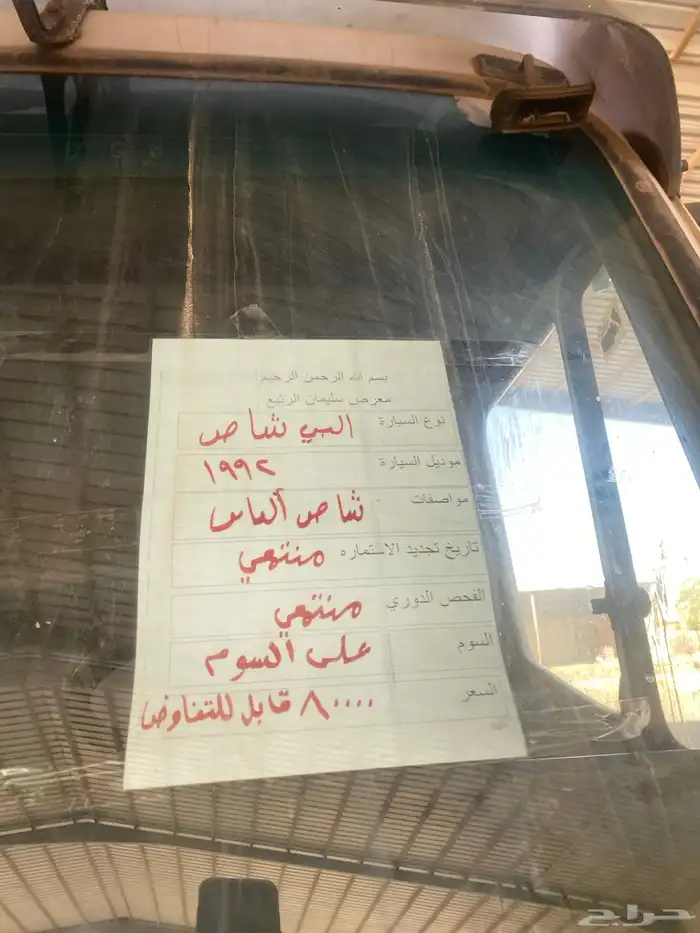 بسم الله الرحمن الرحيم
معرض سليمان الرثيع
نوع السيارة البي شاص
موديل السيارة ١٩٩٢
مواصفات شاص ألماس
تاريخ تجديد الاستماره منتهي
الفحص الدوري منتهي
السوم على السوم
السعر ٨٠٠٠٠ قابل للتفاوض
حراج